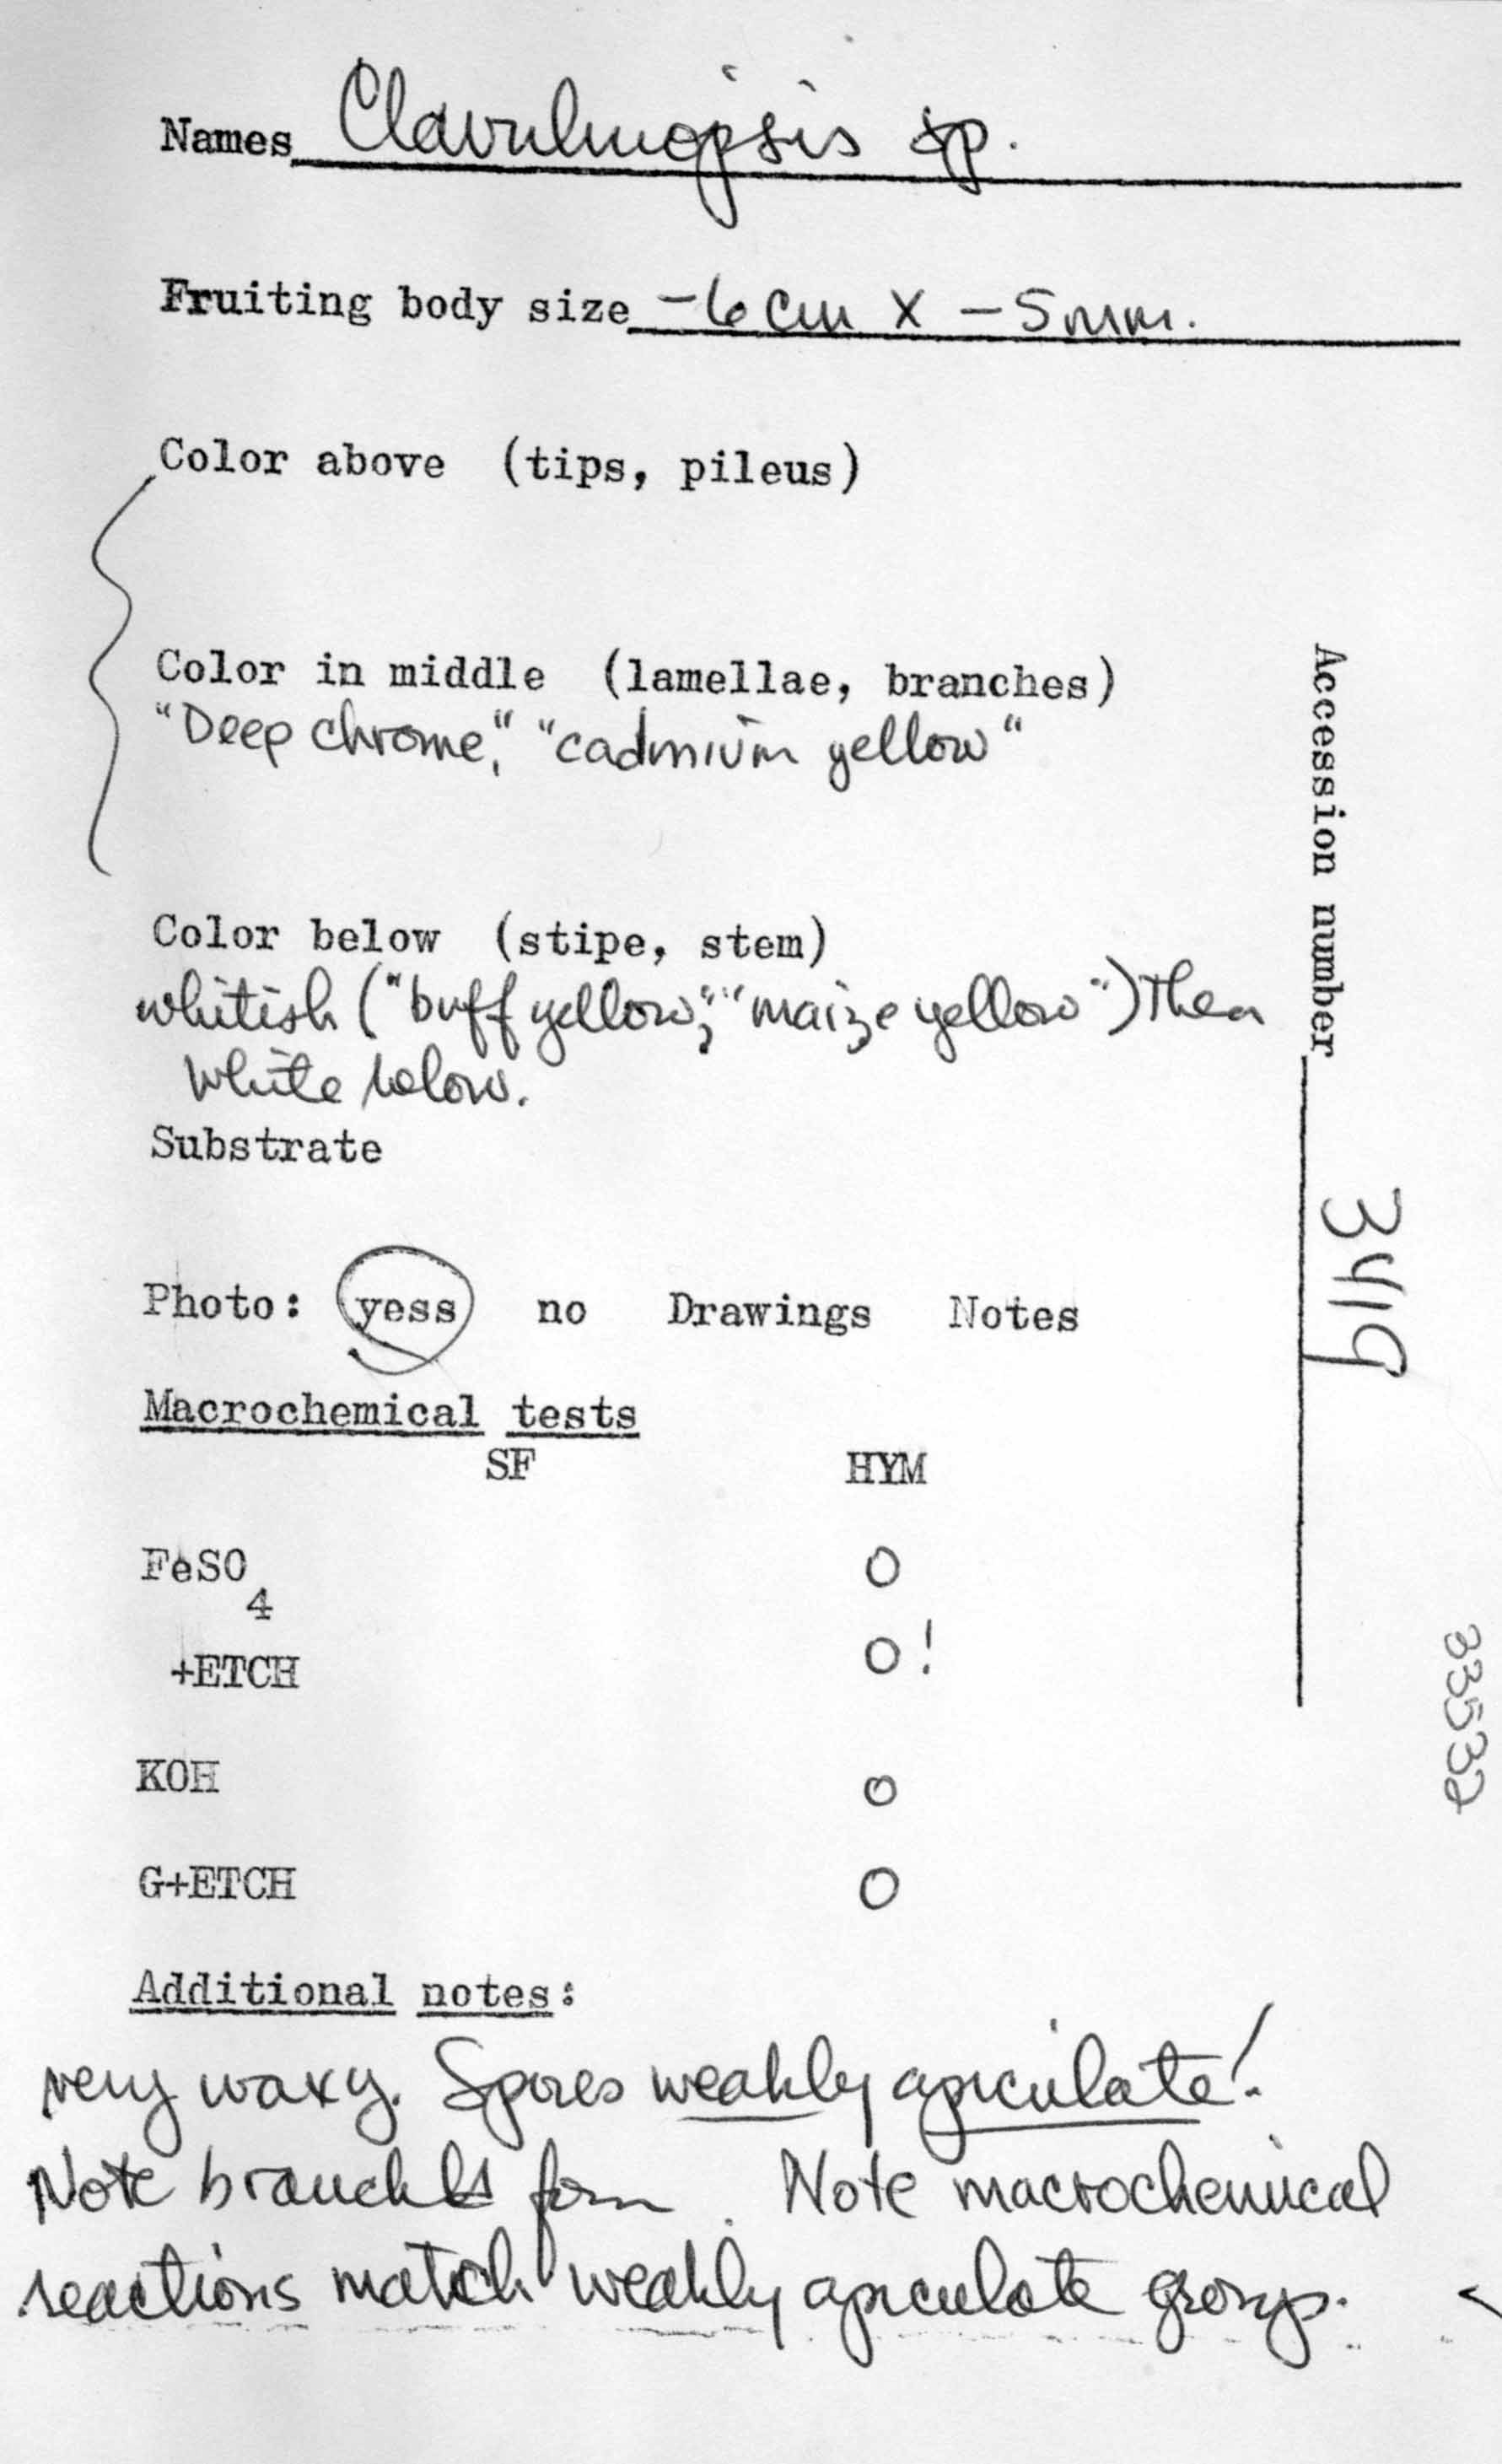 Names Clavulinopsis sp.
Fruiting body size -6 cm X -5 mm.
Color above (tips, pileus)
Color in middle (lamellae, branches)
"Deep chrome," "cadmium yellow"
Color below (stipe, stem)
whitish ("buff yellow;" "maize yellow") then
white below.
Substrate
Photo: yess no Drawings Notes
Macrochemical tests
SF HYM
FeSO4 O
+ETCH O!
KOH O
G+ETCH O
Additional notes:
very waxy. Spores weakly apiculate!
Note form. Note macrochemical
reactions match weakly apiculate group.
Accession number 3419
33532